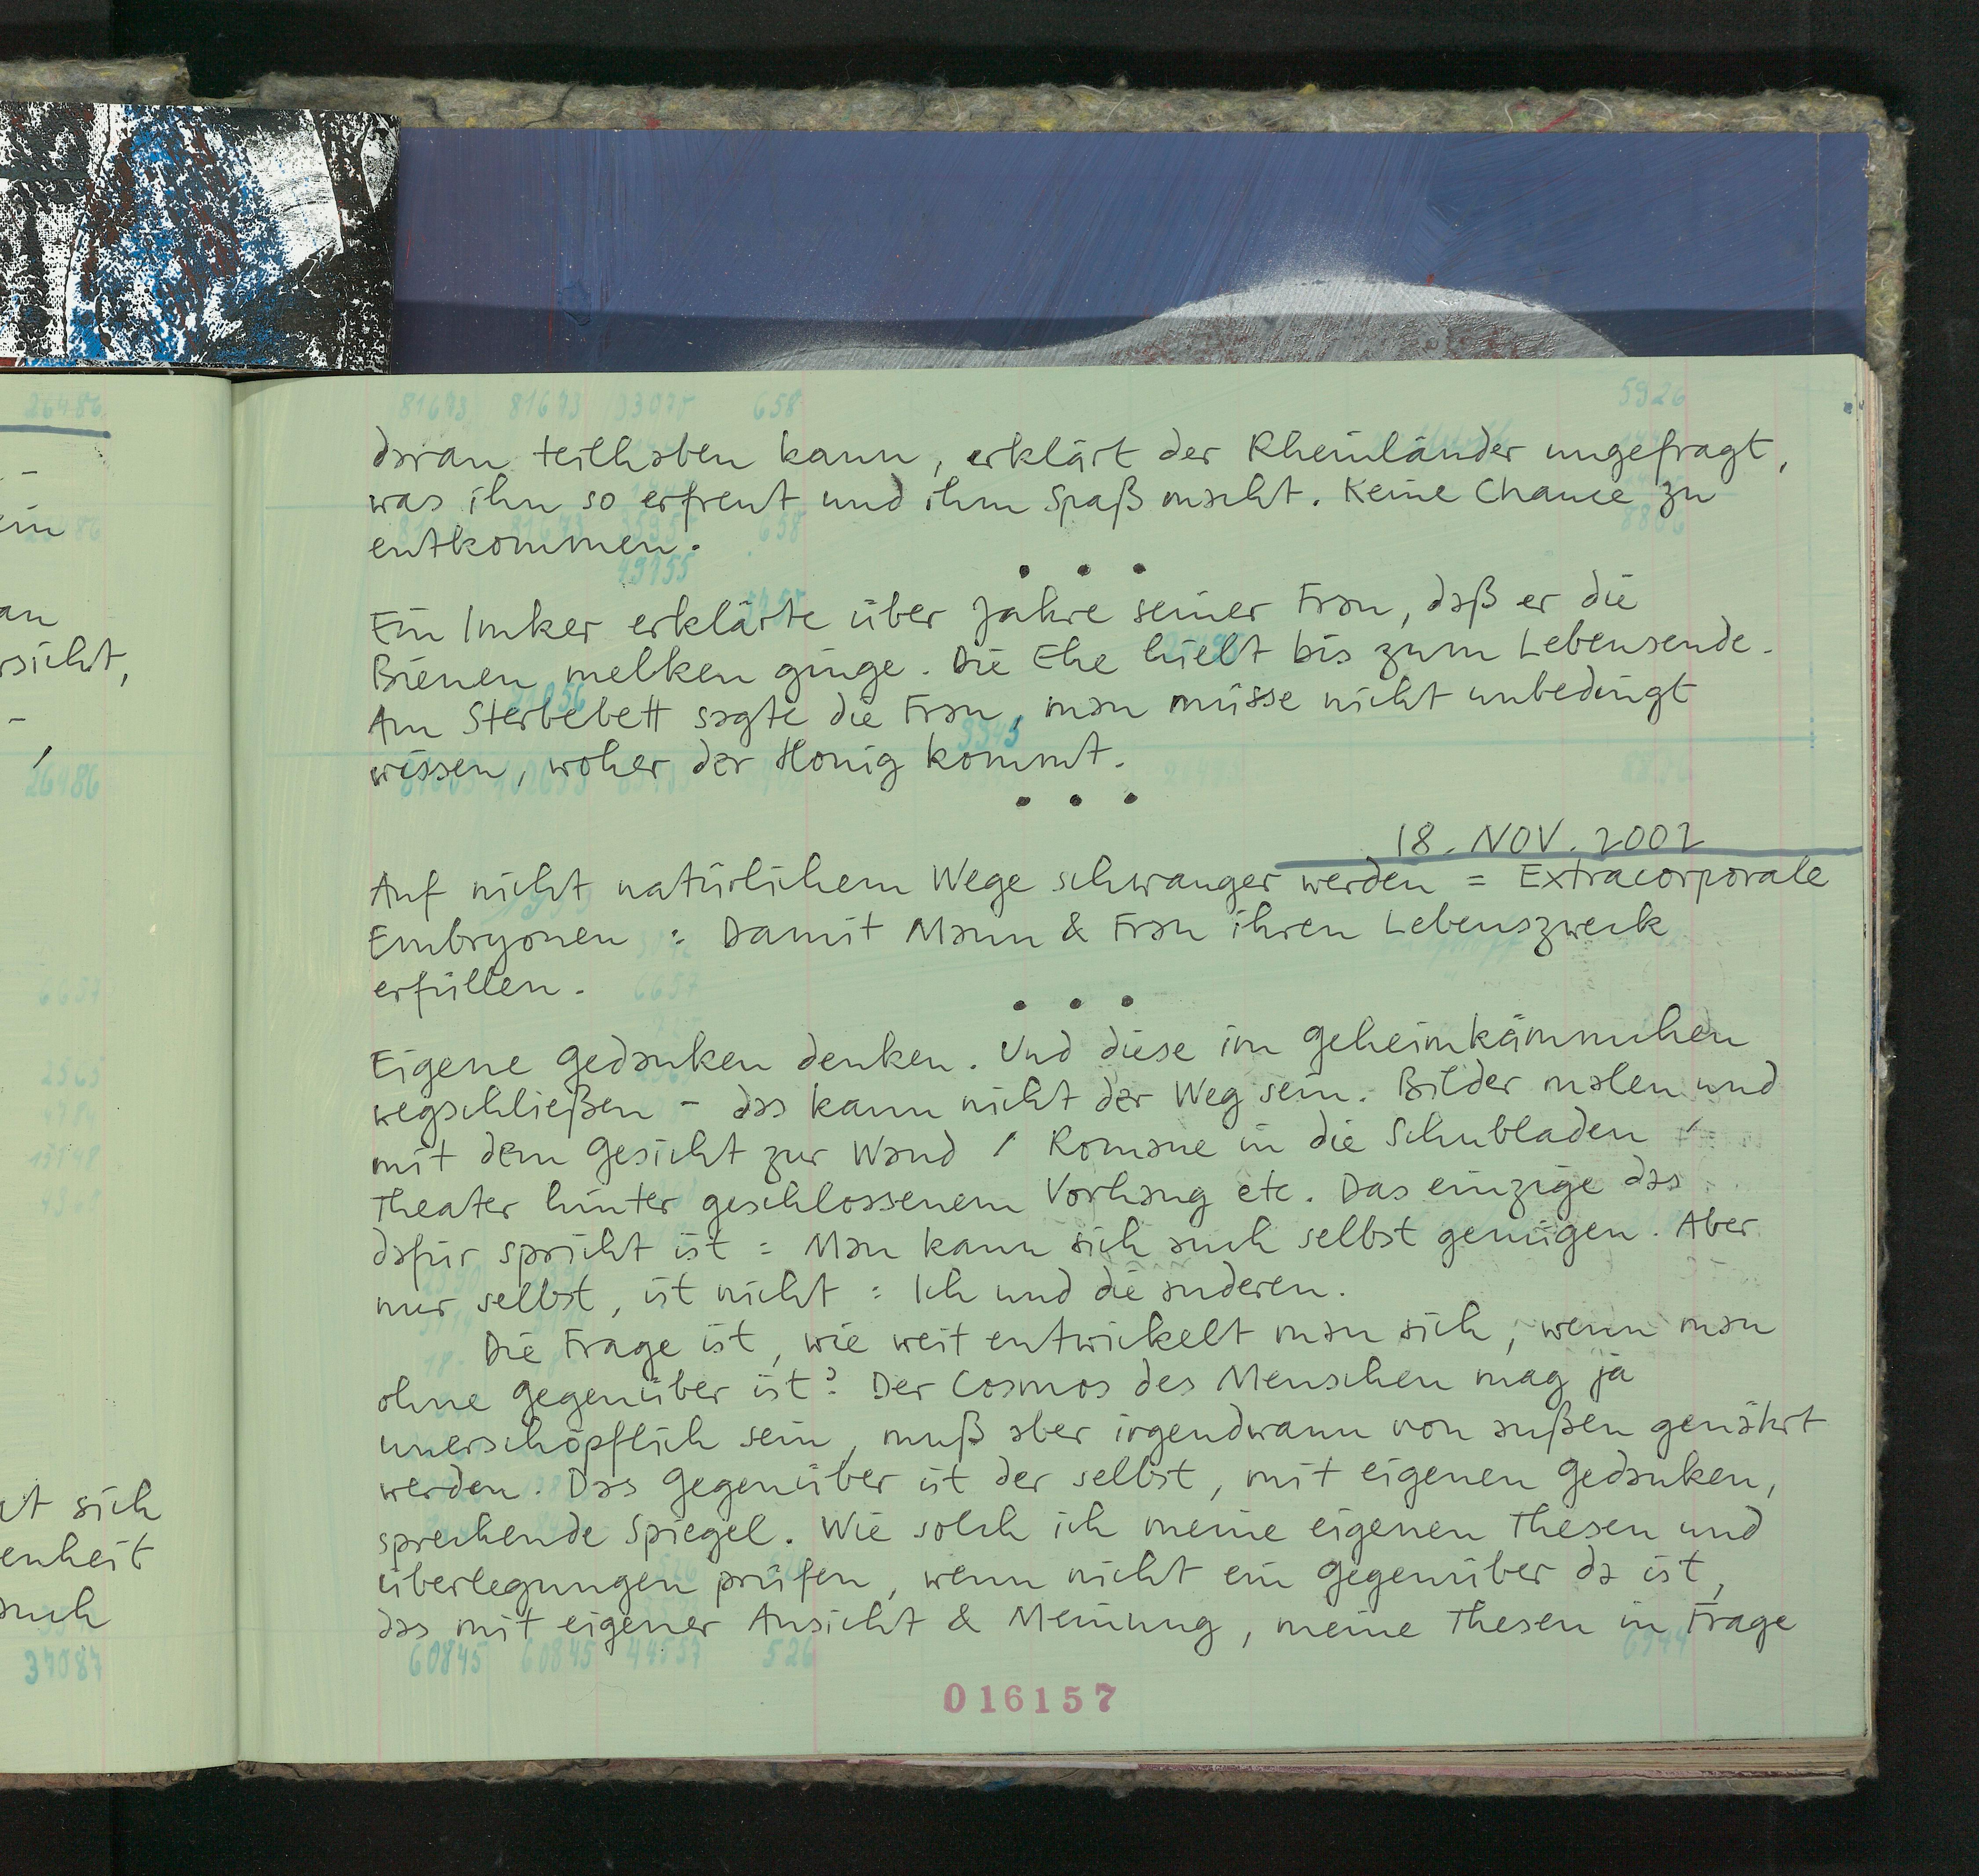 daran teilhaben kann, erklärt der Rheinländer ungefragt,
was ihn so erfreut und ihm Spaß macht. Keine Chance zu
entkommen.
• • •
Ein Imker erklärte über Jahre seiner Frau, daß er die
Bienen melken ginge. Die Ehe hielt bis zum Lebensende.
Am Sterbebett sagte die Frau, man müsse nicht unbedingt
wissen, woher der Honig kommt.
• • •
18. NOV. 2002
Auf nicht natürlichem Wege schwanger werden = Extracorporale
Embryonen : Damit Mann & Frau ihren Lebenszweck
erfüllen.
• • •
Eigene Gedanken denken. Und diese im Geheimkämmchen
wegschließen – das kann nicht der Weg sein. Bilder malen und
mit dem Gesicht zur Wand / Romane in die Schubladen /
Theater hinter geschlossenem Vorhang etc. Das einzige das
dafür spricht ist : Man kann sich auch selbst genügen. Aber
nur selbst, ist nicht : Ich und die anderen.
Die Frage ist, wie weit entwickelt man sich, wenn man
ohne Gegenüber ist? Der Cosmos des Menschen mag ja
unerschöpflich sein, muß aber irgendwann von außen genährt
werden. Das Gegenüber ist der selbst, mit eigenen Gedanken,
sprechende Spiegel. Wie solch ich meine eigenen Thesen und
Überlegungen prüfen, wenn nicht ein Gegenüber da ist,
das mit eigener Ansicht & Meinung, meine Thesen in Frage
016157
26486
ein
an
rsicht,
26486
6657
2565
4784
sich
enheit
auch
37087
81673 81673 33075 658
5926
658
49155
60845 60845 44557 526
6944